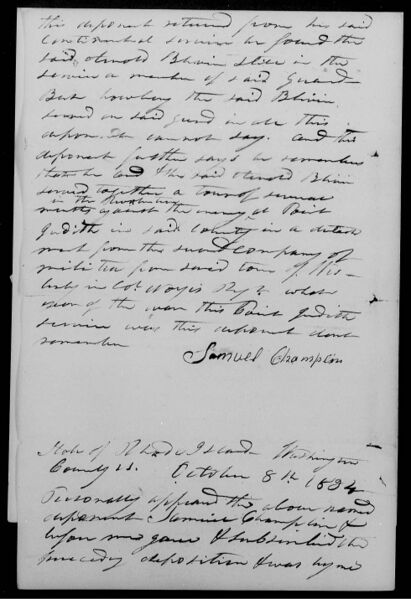 this deponent returned from his said
Continental service he found the
said Arnold Bliven still in the
service a member of said Guard
But how long the said Bliven
served on said guard in all this
depon.t he cannot say. and this
deponent further says he remembers
that he and the said Arnold Bliven
served together a tour of service
in the
against the enemy at Point
Judith in said County in a detach
ment from the second company of
militia from said town of Wes-
terly in Col. Noyes Regt. what
year of the war this Point Judith
service was this deponent dont
remember
Samuel Champlin
State of Rhode Island Washington
County ss. October 8th 1834
Personally appeared the above named
deponent Samuel Champlin &
before me gave & subscribed the
preceding deposition & was by me